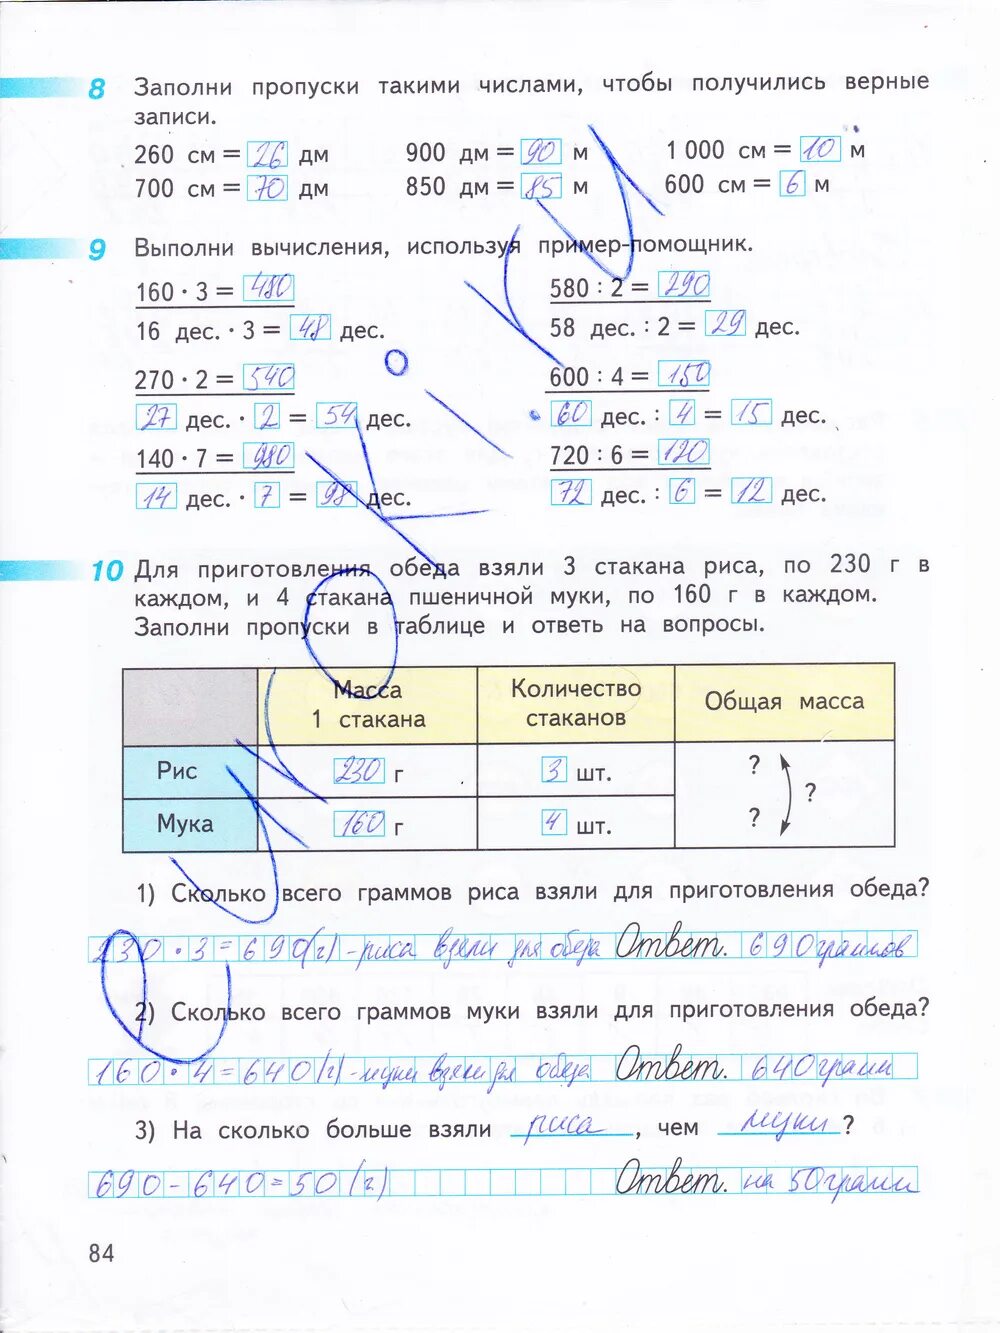 8 Заполни пропуски такими числами, чтобы получились верные
записи.
260 см = 26 дм 900 дм = 90 м 1 000 см = 10 м
700 см = 70 дм 850 дм = 85 м 600 см = 6 м
9 Выполни вычисления, используя пример-помощник.
160 · 3 = 480 580 : 2 = 290
16 дес. · 3 = 48 дес. 58 дес. : 2 = 29 дес.
270 · 2 = 540 600 : 4 = 150
27 дес. · 2 = 54 дес. 60 дес. : 4 = 15 дес.
140 · 7 = 980 720 : 6 = 120
14 дес. · 7 = 98 дес. 72 дес. : 6 = 12 дес.
10 Для приготовления обеда взяли 3 стакана риса, по 230 г в
каждом, и 4 стакана пшеничной муки, по 160 г в каждом.
Заполни пропуски в таблице и ответь на вопросы.
Масса 1 стакана Количество стаканов Общая масса
Рис 230 г 3 шт. ?
?
Мука 160 г 4 шт. ?
1) Сколько всего граммов риса взяли для приготовления обеда?
230 · 3 = 690 (г) - риса взяли для обеда Ответ. 690 граммов
2) Сколько всего граммов муки взяли для приготовления обеда?
160 · 4 = 640 (г) - муки взяли для обеда Ответ. 640 грамм
3) На сколько больше взяли риса, чем муки?
690 - 640 = 50 (г) Ответ. на 50 грамм
84